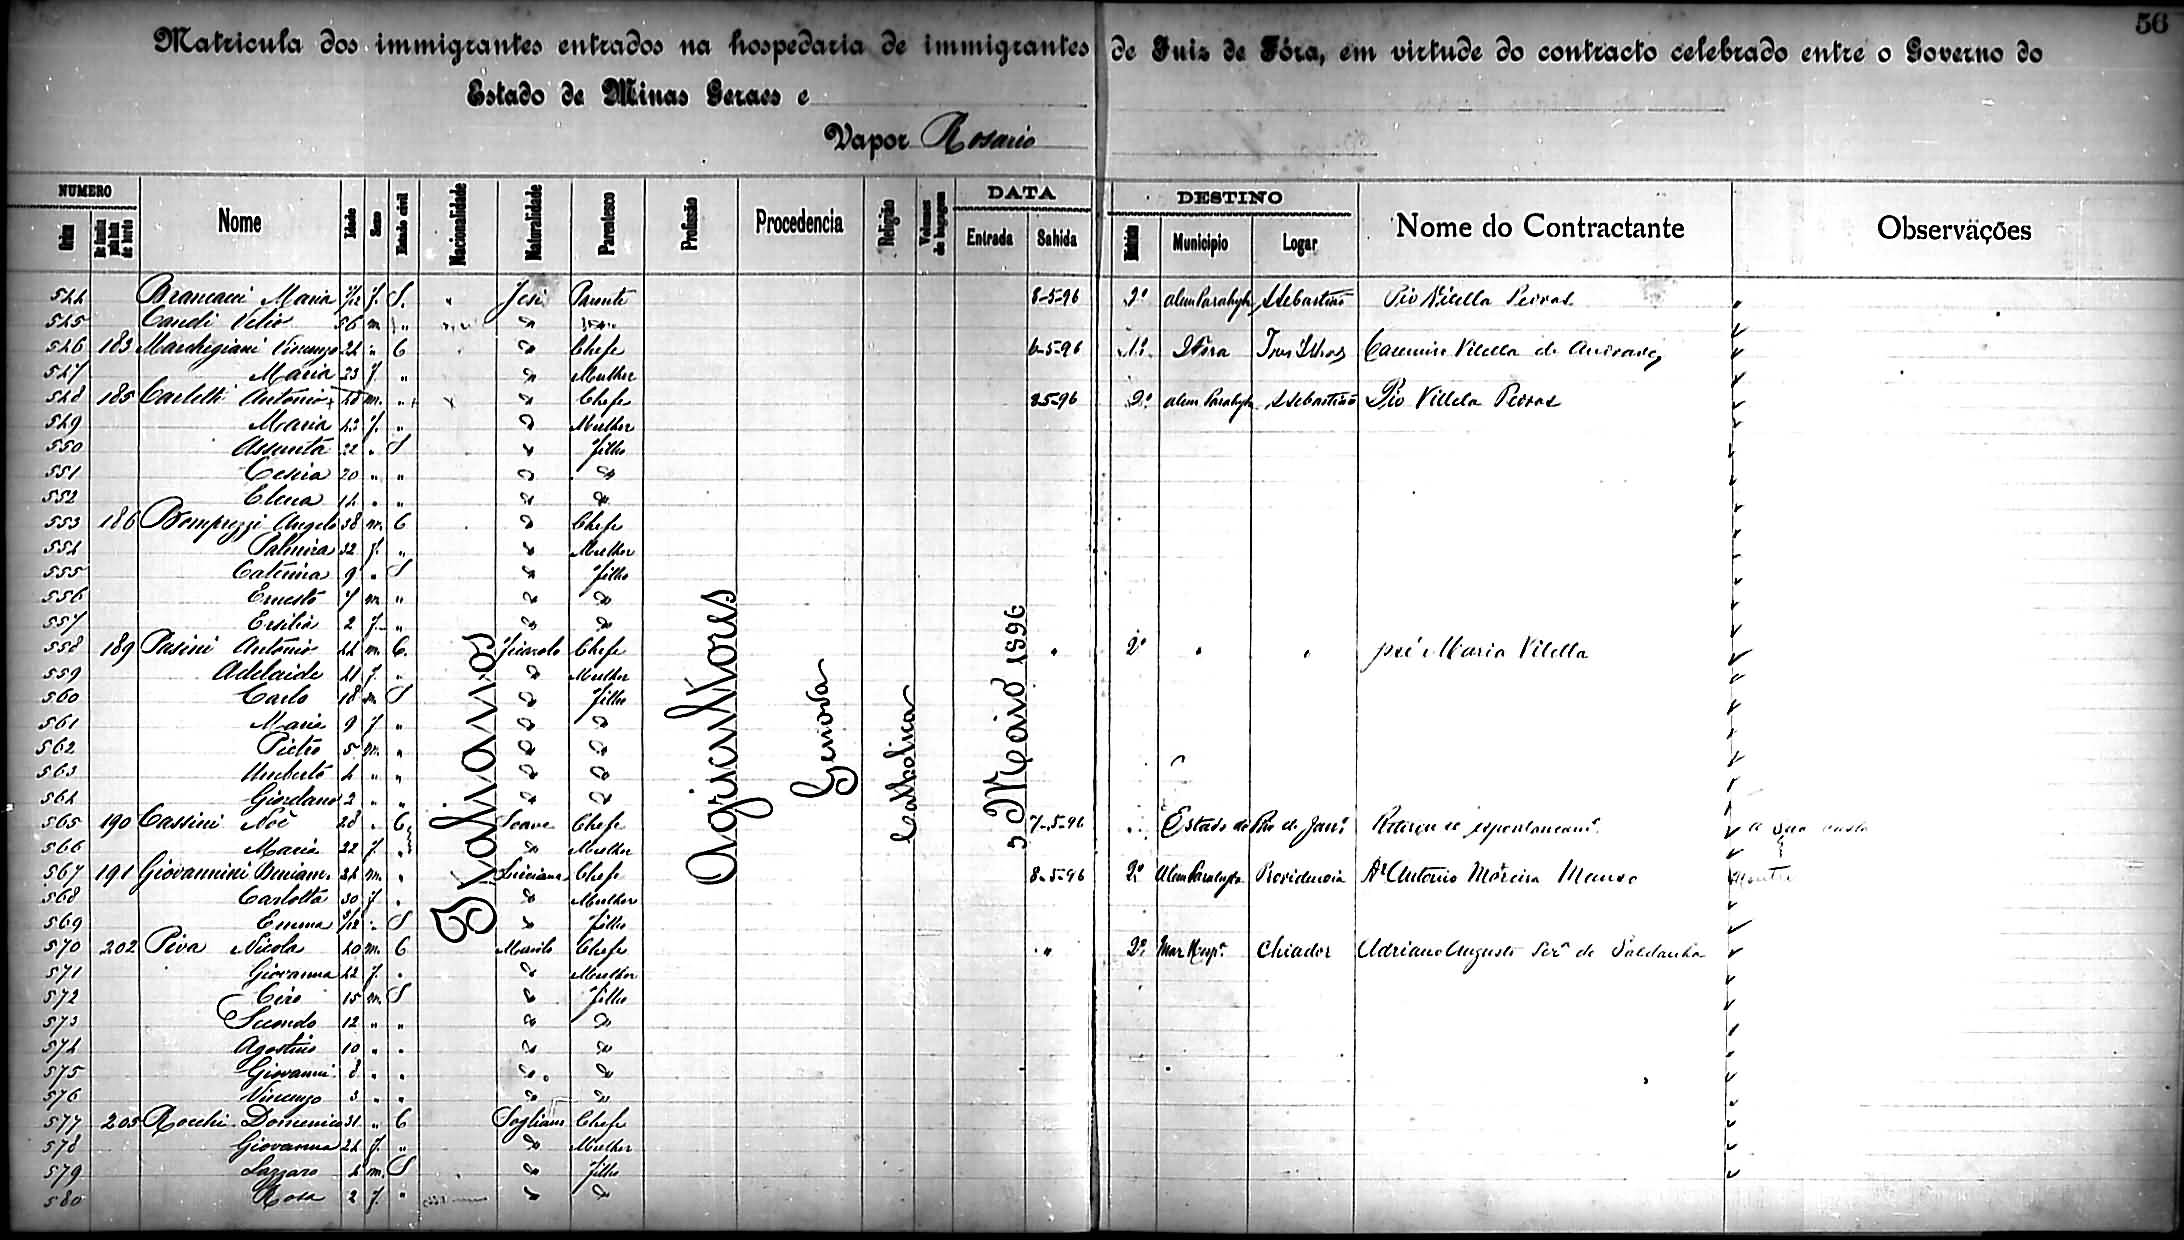 56
Matricula dos immigrantes entrados na hospedaria de immigrantes de Juiz de Fóra, em virtude do contracto celebrado entre o Governo do
Estado de Minas Geraes e
Vapor Rosario
NUMERO DATA DESTINO
Ordem Nome Idade Sexo Estado civil Nacionalidade Naturalidade Parentesco Profissão Procedencia Religião Volumes de bagagem Entrada Sahida Districto Municipio Logar Nome do Contractante Observações
Italiannos Agricultores Genova Catholica 5 Maio 1896
544 Brancacci Maria f. S. " Jesi Parente 8-5-96 2º alem Parahyba S Sebastião Pio Vilella Pedras
545 Candi Velio 56 m "
546 183 Marchegiani Vincenzo 24 " C Chefe 6-5-96 1º J Fóra Vilella de Andrade
547 Maria 23 f " Mulher
548 185 Carletti Antonio m. " Chefe 8-5-96 2º alem Parahyba S Sebastião Pio Villela Pedras
549 Maria 43 f. " Mulher
550 Assunta 22 " S filho
551 Cesira 20 " "
552 Elena 14 " "
553 186 Bompezzi Angelo 38 m. C Chefe
554 Palmira 32 f. " Mulher
555 Caterina 9 " S filho
556 Ernesto 7 m "
557 Ersilia 2 f. "
558 189 Pasini Antonio 44 m. C. Chefe " 2º " " José Maria Vilella
559 Adelaide 41 f. " Mulher
560 Carlo 18 m S filho
561 Maria 9 f "
562 Pietro 5 m. "
563 Umberto 4 " "
564 Giordano 2 " "
565 190 Cassini Noè 28 " C. Soave Chefe 7-5-96 Estado do Rio de Janº Retirou se espontaneamº a sua custa
566 Maria 22 f. " Mulher
567 191 Giovannini Beniam. 34 m. " Chefe 8-5-96 2º Alem Parahyba Providencia Dr Antonio Moreira Manso
568 Carlotta 30 f " Mulher
569 Emma " S filho
570 202 Piva Nicola 40 m. C Chefe " 2º Mar Hespª Chiador Adriano Augusto Ferª de Saldanha
571 Giovanna 42 f. " Mulher
572 Ciro 15 m. S filho
573 Secondo 12 " "
574 Agostino 10 " "
575 Giovanni 8 " "
576 Vincenzo 3 " "
577 205 Rocchi Domenico 31 " C Sogliano Chefe
578 Giovanna 24 f. " Mulher
579 Lazzaro 4 m. S filho
580 Rosa 2 f. "